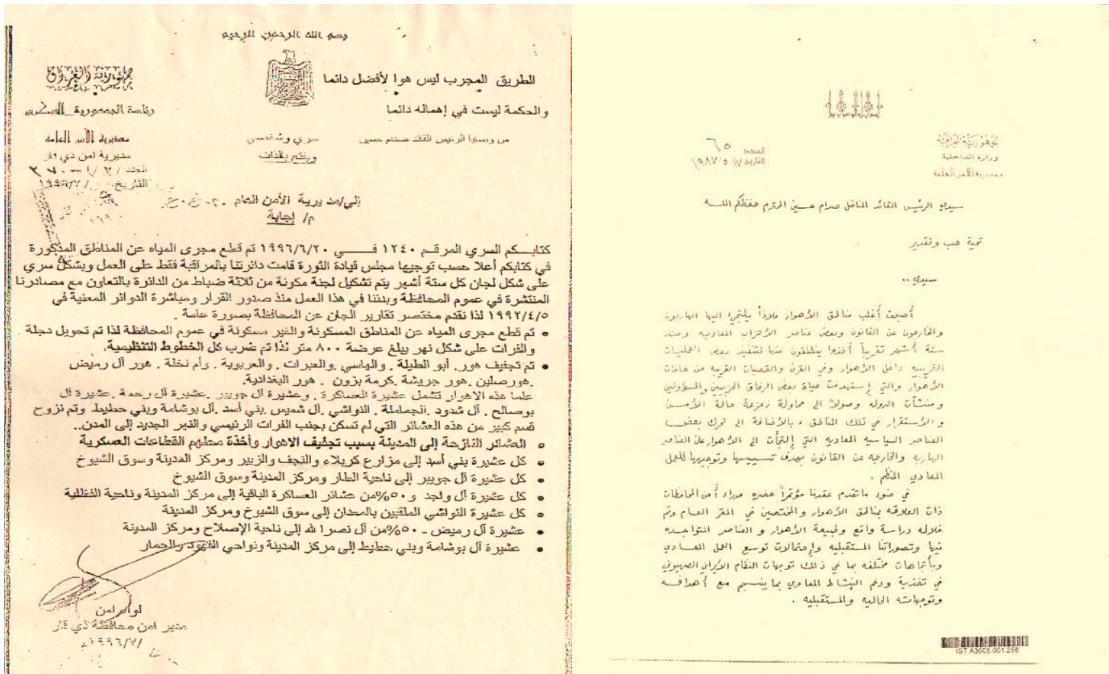 بسم الله الرحمن الرحيم
جمهورية العراق
رئاسة الجمهورية السكرتير
مديرية الأمن العامة
مديرية امن ذي قار
الطريق المجرب ليس هوا لأفضل دائما
والحكمة ليست في إهماله دائما
من وصايا الرئيس القائد صدام حسين
سري وشخصي
إلى/مديرية الأمن العام
م/ إجابة
كتابكم السري المرقم ١٢٤٠ في ١٩٩٦/٦/٢٠ تم قطع مجرى المياه عن المناطق المذكورة
في كتابكم أعلا حسب توجيها مجلس قيادة الثورة قامت دائرتنا بالمراقبة فقط على العمل وبشكل سري
على شكل لجان كل ستة أشهر يتم تشكيل لجنة مكونة من ثلاثة ضباط من الدائرة بالتعاون مع مصادرنا
المنتشرة في عموم المحافظة وبدئنا في هذا العمل منذ صدور القرار ومباشرة الدوائر المعنية في
١٩٩٢/٤/٥ لذا نقدم مختصر تقارير الجان عن المحافظة بصورة عامة .
• تم قطع مجرى المياه عن المناطق المسكونة والغير مسكونة في عموم المحافظة لذا تم تحويل دجلة
والفرات على شكل نهر يبلغ عرضة ٨٠٠ متر لذا تم ضرب كل الخطوط التنظيمية.
• تم تجفيف هور. أبو الطيلة . والهاسي .والعبرات . والعريوية . وأم نخلة . هور آل رميض
.هورصلين .هور جريشة .كرمة بزون . هور البغدادية.
علما هذه الاهوار تشمل عشيرة العساكرة . وعشيرة آل جويبر .عشيرة آل رحمة .عشيرة آل
بوصالح . آل شدود .الجماملة . النواشي .آل شميس .بني أسد .آل بوشامة وبني حطيط . وتم نزوح
قسم كبير من هذه العشائر التي لم تسكن بجنب الفرات الرئيسي والنهر الجديد إلى المدن..
• العشائر النازحة إلى المدينة بسبب تجفيف الاهوار وأخذة معظهم القطاعات العسكرية
• كل عشيرة بني أسد إلى مزارع كربلاء والنجف والزبير ومركز المدينة وسوق الشيوخ
• كل عشيرة آل جويبر إلى ناحية الطار ومركز المدينة وسوق الشيوخ
• كل عشيرة آل واجد و ٥٠%من عشائر العساكرة الباقية إلى مركز المدينة وناحية الفضلية
• كل عشيرة النواشي الملقبين بالمعدان إلى سوق الشيوخ ومركز المدينة
• عشيرة آل رميض ـ ٥٠%من آل نصرا لله إلى ناحية الإصلاح ومركز المدينة
• عشيرة آل بوشامة وبني حطيط إلى مركز المدينة ونواحي الفهود والحمار
لواء امن
مدير امن محافظة ذي قار
/١٩٩٦/٧
الجمهورية العراقية
وزارة الداخلية
مديرية الأمن العامة
العدد ٦٥
سيدي الرئيس القائد المناضل صدام حسين المحترم حفظكم الله
تحية حب وتقدير
سيدي ..
أصبحت أغلب مناطق الأهوار ملاذاً يلتجئ اليها الهاربون
والخارجون عن القانون وبعض عناصر الأحزاب المعاديه ومنذ
ستة أشهر تقريباً أخذوا ينطلقون منها لتنفيذ بعض العمليات
التخريبيه داخل الأهوار وفي القرى والقصبات القريبه من حافات
الأهوار والتي إستهدفت حياة بعض الرفاق الحزبيين والمسؤولين
ومنشآت الدوله وصولاً الى محاولة زعزعة حالة الأمن
والأستقرار في تلك المناطق ، بالأضافة الى تحرك بعض
العناصر السياسيه المعاديه التي إلتجأت الى الأهوار على العناصر
الهاربه والخارجه عن القانون بهدف تسييسها وتوجيهها للعمل
المعادي المنظم .
في ضوء ماتقدم عقدنا مؤتمراً حضره مدراء أمن المحافظات
ذات العلاقه بمناطق الأهوار والمختصين في المقر العام وتم
خلاله دراسة واقع وطبيعة الأهوار و العناصر المتواجده
فيها وتصوراتنا المستقبليه وإحتمالات توسع العمل المعادي
وبأتجاهات مختلفه بما في ذلك توجهات النظام الأيراني الصهيوني
في تغذية ودعم النشاط المعادي بما ينسجم مع أهدافه
وتوجهاته الحاليه والمستقبليه .
IST A3005.001.258